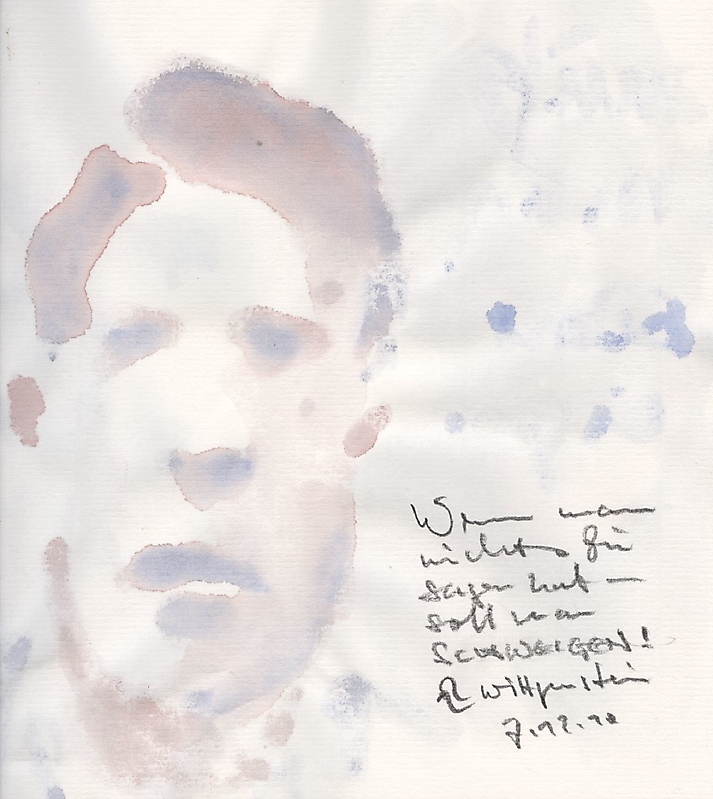 Wenn man
nichts zu
sagen hat –
soll man
SCHWEIGEN!
Wittgenstein
7.12.10